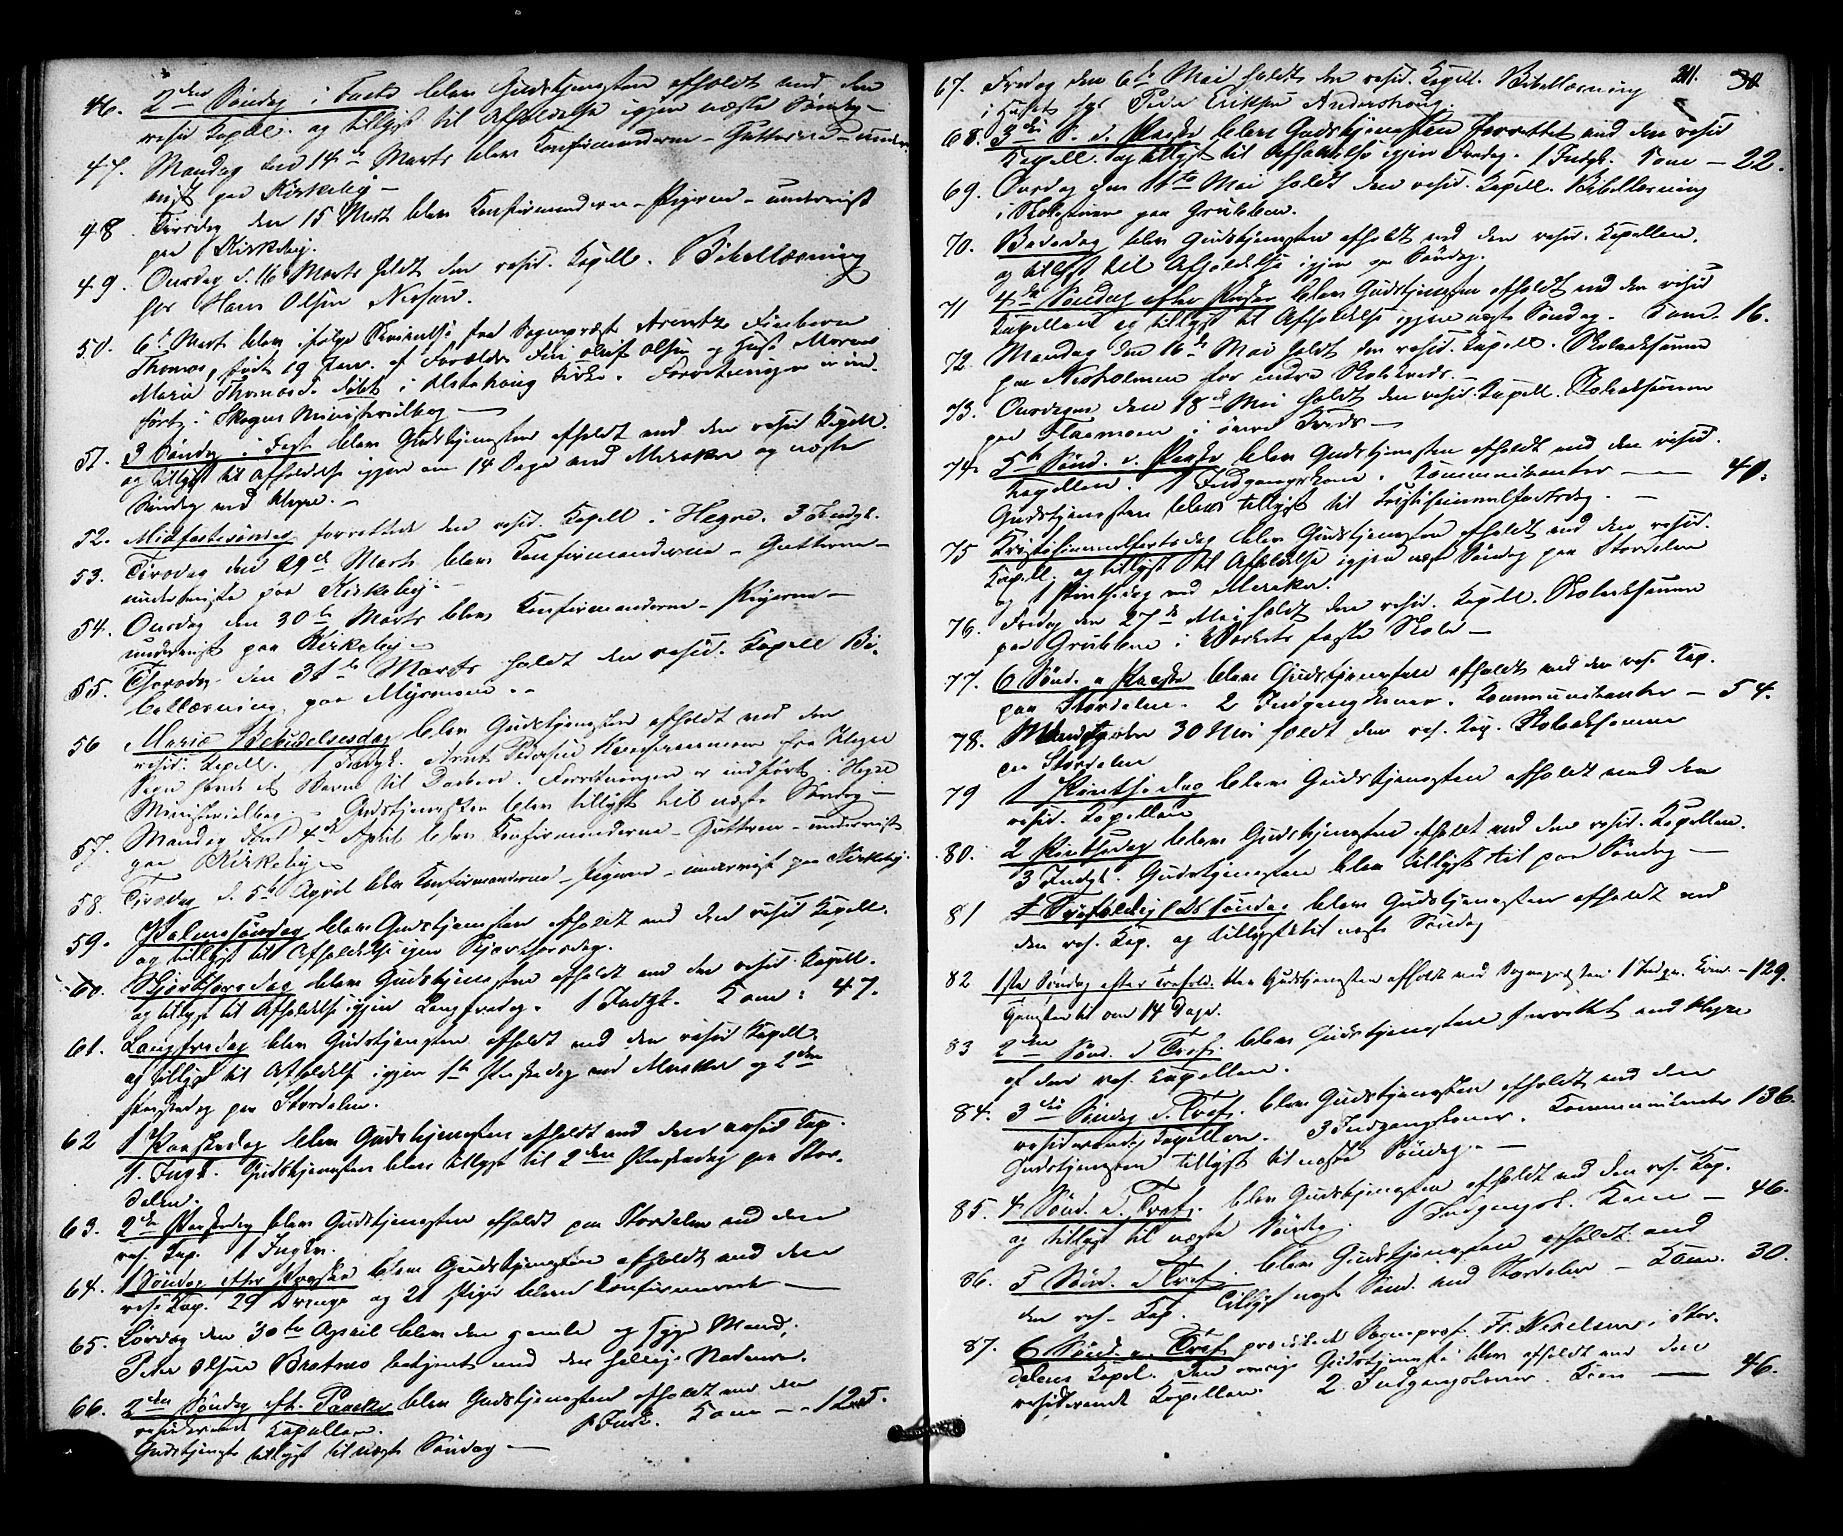 46. 2den Søndag i Faste blev Gudstjenesten afholdt ved den
resid Kapell. og tillyst til Afholdelse igjen næste Søndag –
47. Mandag den 14de Marts blev Konfirmanderne – Gutterne – underv
vist paa Kirkeby –
48. Tirsdag den 15 Marts blev Konfirmanderne – Pigerne – undervist
paa Kirkeby.
49. Onsdag d. 16 Marts holdt den resid. Kapell. Bibellæsning
hos Hans Olsen
50. 6te Marts blev ifølge fra Sogneprest Arentz
Thomas, født 19 Janr. af Forældre Olsen og Hust
Marie Thomasd. døbt i Alstahoug Kirke. Forretningen er ind-
ført i Skogns Ministerialbog –
51. 3 Søndag i Fast blev Gudstjenesten afholdt ved den resid Kapell.
og tillyst til Afholdelse igjen om 14 Dage ved Meraker og næste
Søndag ved Hegre. –
52. Midfastesøndag forrettede den resid. Kapell i Hegre. 3 Indgk.
53. Tirsdag den 29de Marts blev Konfirmanderne – Gutterne –
underviste paa Kirkeby. –
54. Onsdag den 30te Marts blev Konfirmanderne – Pigerne –
undervist paa Kirkeby –
55. Thorsdag den 31te Marts holdt den resid. Kapell Bi-
bellæsning paa Myrmoen. –
56 Mariæ Bebudelsesdag blev Gudstjenesten afholdt ved den
resid. Kapell. 1 Indgk. Arnt Pedersen fra Hegre
Sogn havde et Barn til Daaben. Forretningen er indført i Hegre
Ministerialbog. – Gudstjenesten blev tillyst til næste Søndag –
57. Mandag den 4de April blev Konfirmanderne – Gutterne – undervist
paa Kirkeby –
58. Tirsdag d. 5te April blev Konfirmanderne – Pigerne – undervist paa Kirkeby.
59. Palmesøndag blev Gudstjenesten afholdt ved den resid Kapell.
og tillyst til Afholdelse igjen Skjærthorsdag.
60. Skjærthorsdag blev Gudstjenesten afholdt ved den resid. Kapell.
og tillyst til Afholdelse igjen Langfredag. 1 Indgk. Kom: 47.
61. Langfredag blev Gudstjenesten afholdt ved den resid Kapell.
og tillyst til Afholdelse igjen 1ste Paaskedag ved Meraker og 2den
Paaskedag paa Stordalen.
62 1 Paaskedag blev Gudstjenesten afholdt ved den resid Kap.
1. Ingk. Gudstjenesten blev tillyst til 2den Paaskedag paa Stor-
dalen.
63. 2den Paaskedag blev Gudstjenesten afholdt paa Stordalen ved den
res. Kap. 1 Ingkn.
64. 1 Søndag efter Paaske blev Gudstjenesten afholdt ved den
res. Kap. 29 Drenge og 21 Piger bleve konfirmerede –
65. Lørdag den 30te April blev den gamle og syge Mand,
Peter Olsen Bratnæs betjent med den hellige Nadvere.
66. 2den Søndag eft. Paaske blev Gudstjenesten afholdt ved den
residerende Kapellan. 1 Indk. Kom – – 125.
Gudstjenesten tillyst til næste Søndag –
211. 30
67. Fredag den 6te Mai holdt den resid. Kapell. Bibellæsning
i Huset hos Peder Eriksen Andershoug.
68. 3die S. e. Paaske blev Gudstjenesten forrettet ved den resid
Kapell. og tillyst til Afholdelse igjen Bededag. 1 Indgk. Kom – 22.
69. Onsdag den 11te Mai holdt den resid. Kapell. Bibellæsning
i Skolestuen paa Grubben.
70. Bededag blev Gudstjenesten afholdt ved den resid. Kapellan.
og tillyst til Afholdelse igjen paa Søndag.
71 4de Søndag efter Paaske blev Gudstjenesten afholdt ved den resid
Kapellan og tillyst til Afholdelse igjen næste Søndag. Kom. 16.
72. Mandag den 16de Mai holdt den resid. Kapell. Skoleeksamen
paa Nesholmen for nedre Skolekreds.
73. Onsdagen den 18de Mai holdt den resid. Kapell. Skoleeksamen
paa Flaamoen i øvre Kreds –
74. 5te Sønd. e. Paaske blev Gudstjenesten afholdt ved den resid.
Kapellan. 1 Indgangskone. Kommunikanter – – 40.
Gudstjenesten blev tillyst til Kristihimmelfartsdag. –
75 Kristihimmelfartsdag blev Gudstjenesten afholdt ved den resid.
Kapell. og tillyst til Afholdelse igjen næste Søndag paa Stordalen
og 1 Pintsedag ved Meraker.
76. Fredag den 27de Mai holdt den resid. Kapell. Skoleeksamen
paa Grubben i Værkets faste Skole –
77. 6 Sønd. e Paaske blev Gudstjenesten afholdt ved den res. Kap.
paa Stordalen. 2 Indgangskoner. Kommunikanter – 54.
78. Mandag den 30 Mai holdt den res. Kap. Skoleeksamen
paa Stordalen
79 1 Pintsedag blev Gudstjenesten afholdt ved den
resid. Kapellan
80. 2 Pintsedag blev Gudstjenesten afholdt ved den resid. Kapellan.
3 Indgk. Gudstjenesten blev tillyst til paa Søndag –
81 Trefoldighedssøndag blev Gudstjenesten afholdt ved
den res. Kap. og tillystes til næste Søndag
82 1ste Søndag efter Trefold. blev Gudstjenesten afholdt ved Sognepresten. 1 Indgn. Kom. – 129.
Tjenesten til om 14 Dage.
83 2den Sønd. e Tref. blev Gudstjenesten forrettet ved Hegre
af den res. Kapellan.
84. 3die Søndag e. Tref. blev Gudstjenesten afholdt ved den
residerende Kapellan. 3 Indgangskoner. Kommunikanter 136.
Gudstjenesten tillyst til næste Søndag. –
85. 4 Sønd. e. Tref. blev Gudstjenesten afholdt ved den res. Kap.
og tillyst til næste Søndag. 1 Indgangsk. Kom – 46.
86. 5 Sønd. e Tref. blev Gudstjenesten afholdt ved
den res. Kap. Tillyst næste Sønd. ved Stordalen – Kom. 30.
87. 6 Sønd. e. Tref. prædikede Sogneprest. Fr. Nikelsen i Stor-
dalens Kapel. Den øvrige Gudstjeneste blev afholdt ved den
residerende Kapellan. 2 Indgangskoner. Kom – 46.